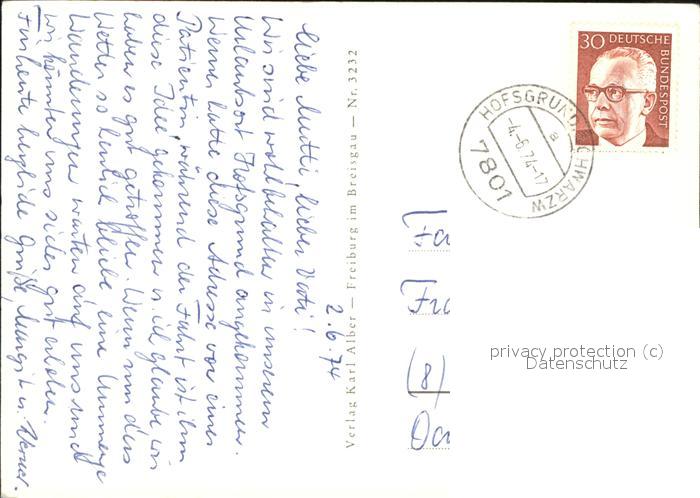 2.6.74
Liebe Mutti, lieber Vati!
Wir sind wohlbehalten in unserem
Urlaubsort Hofsgrund angekommen.
Werner hatte diese Adresse von einer
Patientin, während der Fahrt ist ihm
diese Idee gekommen u. ich glaube wir
haben es gut getroffen. Wenn nun das
Wetter so herrlich bleibt eine Unmenge
Wanderungen warten auf uns und
wir könnten uns sicher gut erholen.
Für heute herzliche Grüße, Margit u. Werner.
Verlag Karl Alber — Freiburg im Breisgau — Nr. 3232
30 DEUTSCHE
BUNDESPOST
HOFSGRUND SCHWARZW
-4.-6.74-17
a
7801
Fa
Fra
(8)
privacy protection (c)
Datenschutz